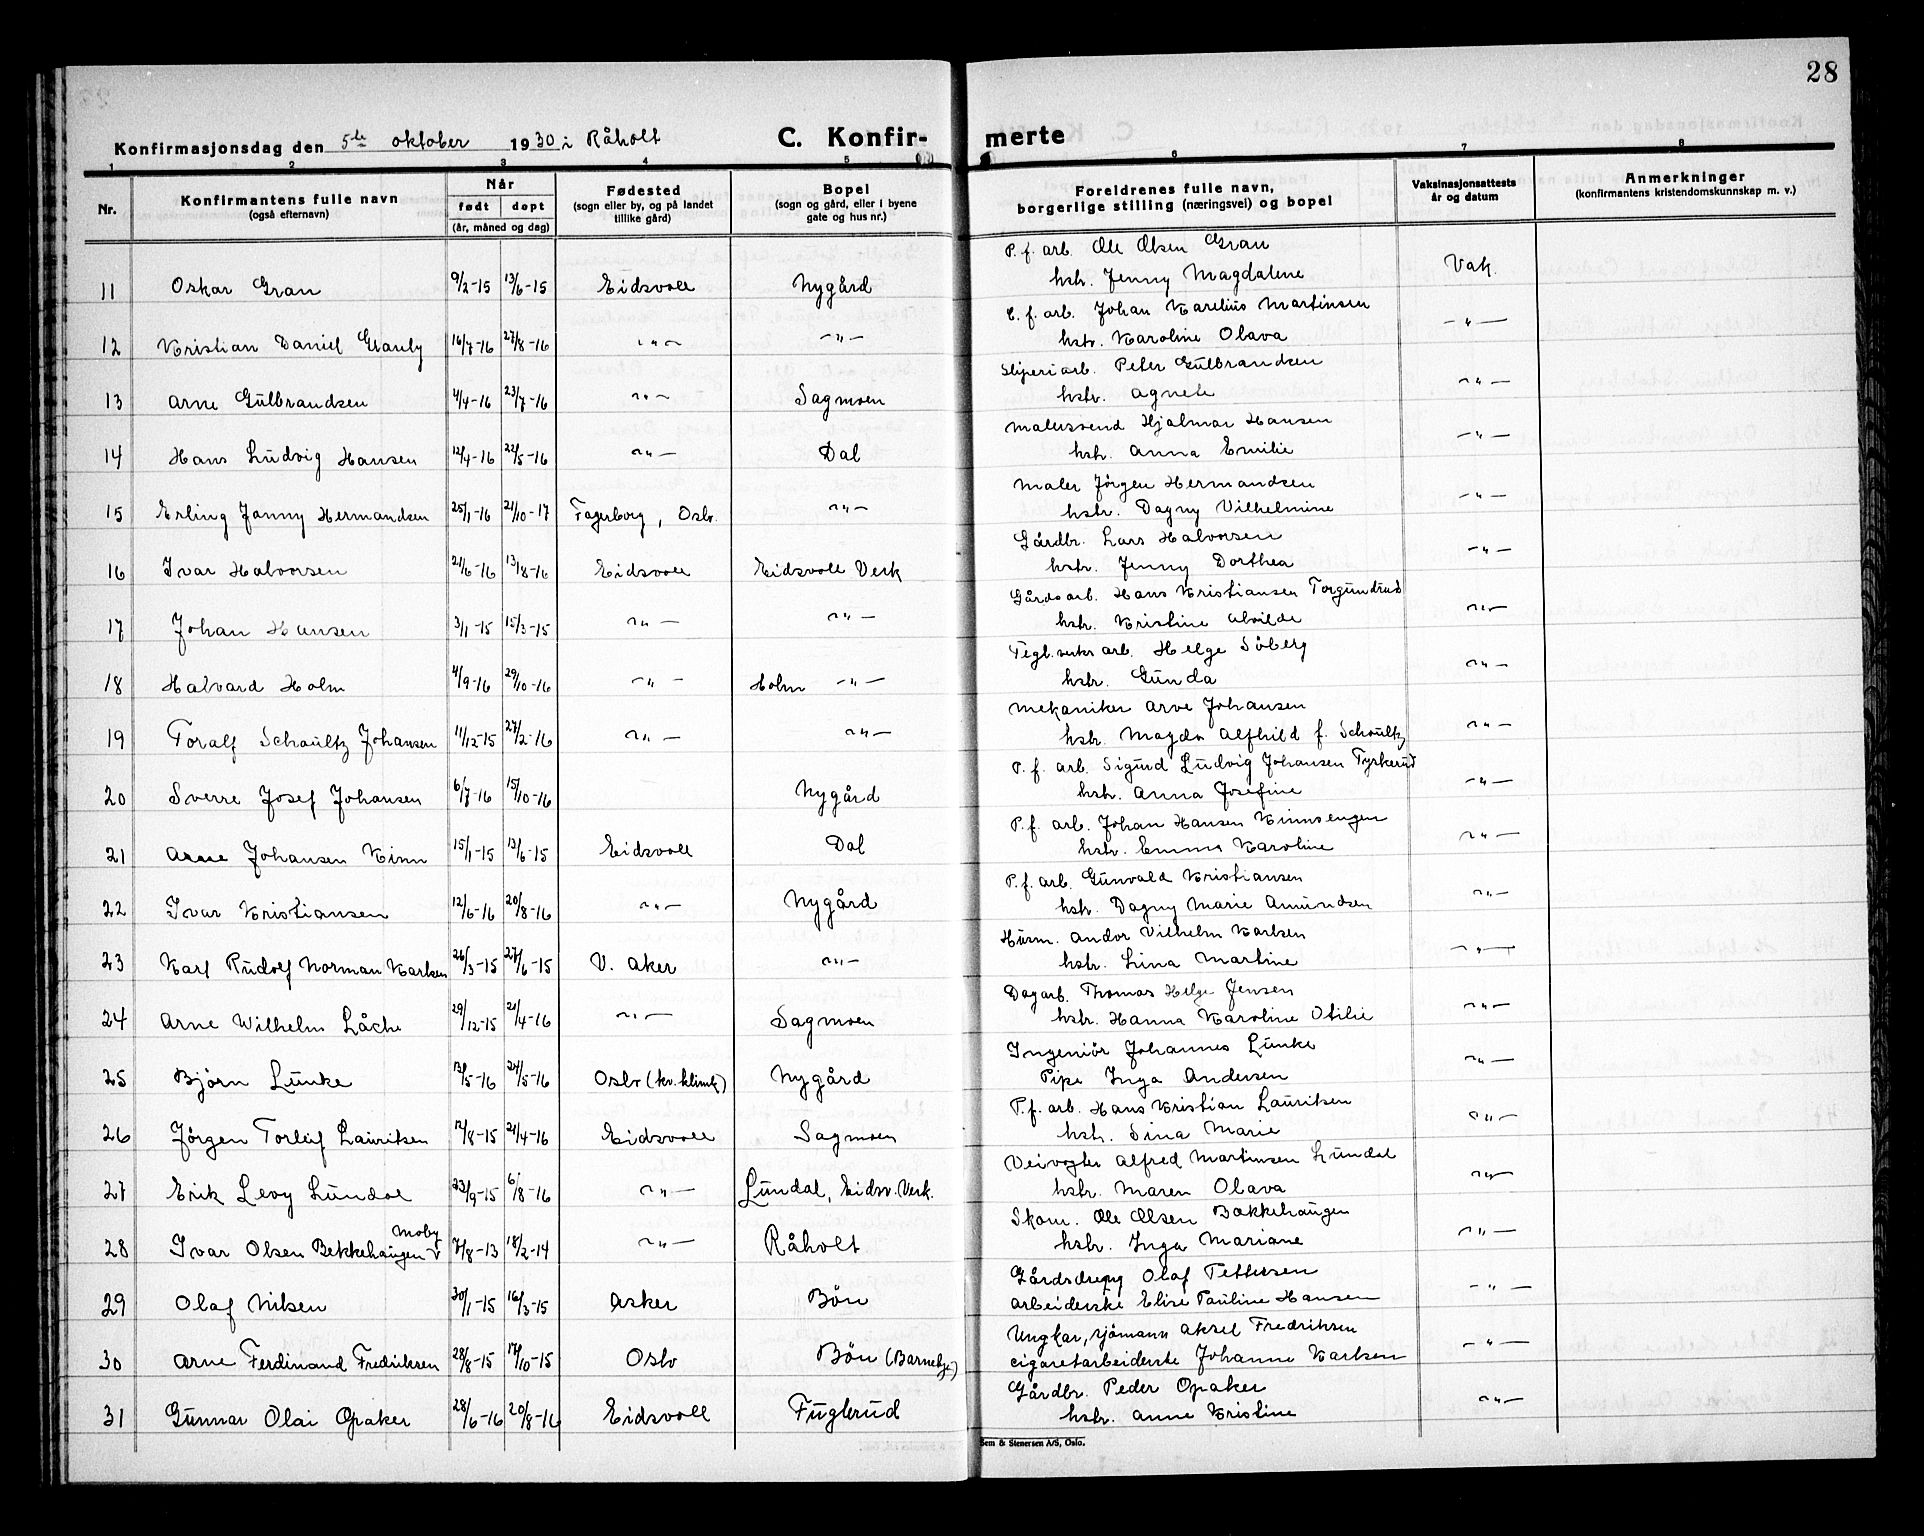 28
Konfirmasjonsdag den 5te oktober 1930 i Råholt
C. Konfir- merte
1 2 3 4 5 6 7 8
Nr. Konfirmantens fulle navn (også efternavn) Når født døpt (år, måned og dag) Fødested (sogn eller by, og på landet tillike gård) Bopel (sogn og gård, eller i byene gate og hus nr.) Foreldrenes fulle navn, borgerlige stilling (næringsvei) og bopel Vaksinasjonsattests år og datum Anmerkninger (konfirmantens kristendomskunnskap m. v.)
P. f. arb. Ole Olsen Gran
11 Oskar Gran 9/2-15 13/6-15 Eidsvoll Nygård hstr. Jenny Magdalene Vak.
C. f. arb. Johan Karelius Martinsen
12 Kristian Daniel 16/7-16 27/8-16 -"- -"- hstr. Karoline Olava -"-
Sliperiarb. Peter Gulbrandsen
13 Arne Gulbrandsen 4/4-16 23/7-16 -"- Sagmoen hstr. Agnete -"-
Malersvend Hjalmar Hansen
14 Hans Ludvig Hansen 12/4-16 22/5-16 -"- Dal hstr. Anna Emilie -"-
Maler Jörgen Hermandsen
15 Erling Jonny Hermandsen 25/1-16 21/10-17 Fagerborg, Oslo. -"- hstr. Dagny Vilhelmine -"-
Gårdbr. Lars Halvorsen
16 Ivar Halvorsen 21/6-16 13/8-16 Eidsvoll Eidsvoll Verk hstr. Jenny Dorthea -"-
Gårdsarb. Hans Kristiansen Torgundrud
17 Johan Hansen 3/1-15 15/3-15 -"- -"- hstr. Kristine Alvilde -"-
Teglverks arb. Helge Söberg
18 Halvard Holm 4/9-16 29/10-16 -"- Holm -"- hstr. Gunda -"-
Mekaniker Arve Johansen
19 Toralf Schoultz Johansen 11/12-15 27/2-16 -"- -"- hstr. Magda Alfhild f. Schoultz -"-
P. f. arb. Sigurd Ludvig Johansen Tyskerud
20 Sverre Josef Johansen 6/7-16 15/10-16 Nygård hstr. Anna Josefine -"-
P. f. arb. Johan Hansen Kinnsengen
21 Arne Johansen Kinn 15/1-15 13/6-15 Eidsvoll Dal hstr. Emma Karoline -"-
P. f. arb. Gunvald Kristiansen
22 Ivar Kristiansen 12/6-16 20/8-16 -"- Nygård hstr. Dagny Marie Amundsen -"-
Husm. Andor Vilhelm Karlsen
23 Karl Rudolf Norman Karlsen 26/3-15 27/6-15 V. Aker -"- hstr. Lina Martine -"-
Dagarb. Thomas Helge Jensen
24 Arne Wilhelm Låche 29/12-15 21/4-16 -"- Sagmoen hstr. Hanna Karoline Otilie -"-
Ingeniör Johannes Lunke
25 Björn Lunke 13/5-16 24/5-16 Oslo (kv.klinik) Nygård Pike Inga Andersen -"-
P. f. arb. Hans Kristian Lauritsen
26 Jörgen Torleif Lauritsen 12/8-15 21/4-16 Eidsvoll Sagmoen hstr. Sina Marie -"-
Veivogter Alfred Martinsen Lundal
27 Erik Levy Lundal 23/9-15 6/8-16 -"- Lundal, Eidsv. Verk. hstr. Maren Olava -"-
Moby Skom. Ole Olsen Bakkehaugen
28 Ivar Olsen Bekkehaugen v 7/8-13 18/2-14 -"- Råholt hstr. Inga Mariane -"-
Gårdsdreng Olaf Pettersen
29 Olaf Nilsen 30/1-15 16/3-15 Asker Bön arbeiderske Elise Pauline Hansen -"-
Ungkar, sjömann Aksel Fredriksen
30 Arne Ferdinand Fredriksen 28/8-15 17/10-15 Oslo Bön (Barnehj.) cigaretarbeiderske Johanne Karlsen -"-
Gårdbr. Peder Opaker
31 Gunnar Olai Opaker 28/6-16 20/8-16 Eidsvoll Fuglerud hstr. Anne Kristine -"-
Sem & Stenersen A/S, Oslo.